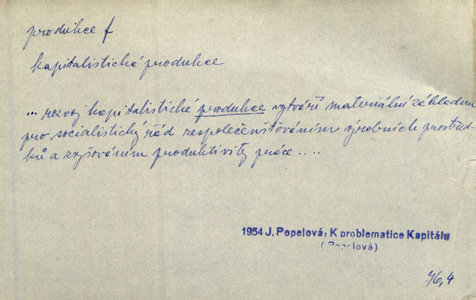 produkce f
kapitalistická produkce
... rozvoj kapitalistické produkce vytváří materiální základnu
pro socialistický řád zespolečenšťováním výrobních prostřed-
ků a zvyšováním produktivity práce ....
1954 J. Popelová, K problematice Kapitálu
(Popelová)
76,4